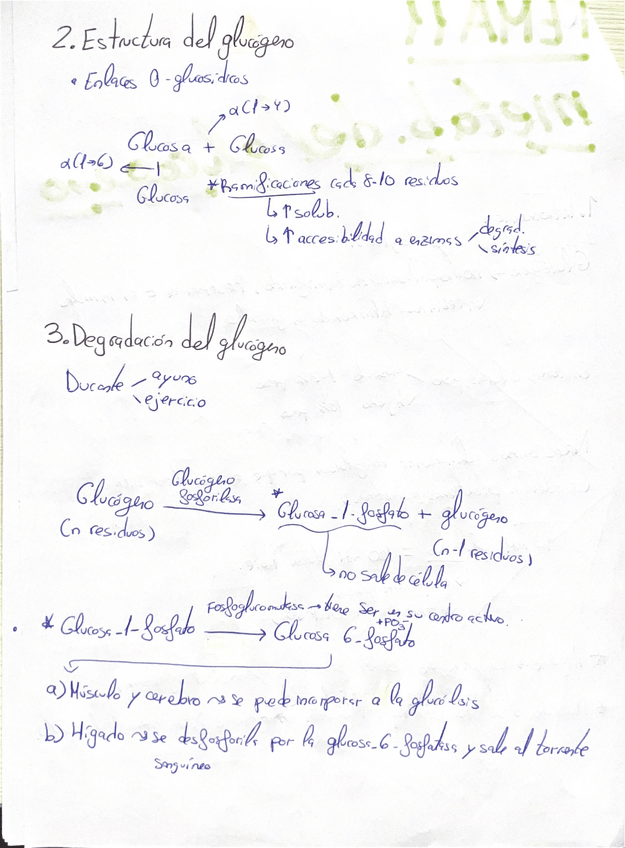 2. Estructura del glucógeno
• Enlaces O-glucosídicos
α(1→4)
Glucosa + Glucosa
α(1→6) ←
Glucosa
* Ramificaciones cada 8-10 residuos
↳ ↑ solub.
↳ ↑ accesibilidad a enzimas degrad.
síntesis
3. Degradación del glucógeno
Durante ayuno
ejercicio
Glucógeno
fosforilasa
Glucógeno → * Glucosa-1-fosfato + glucógeno
(n residuos) (n-1 residuos)
↳ no sale de célula
Fosfoglucomutasa → tiene Ser en su centro activo.
* Glucosa-1-fosfato → Glucosa 6-fosfato
a) Músculo y cerebro → se puede incorporar a la glucólisis
b) Hígado → se desfosforila por la glucosa-6-fosfatasa y sale al torrente
sanguíneo